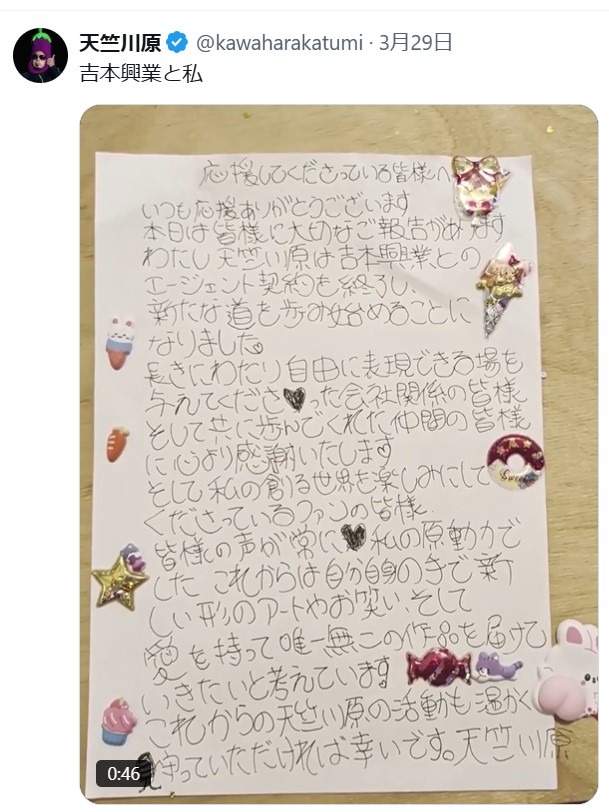 天竺川原 @kawaharakatumi · 3月29日
吉本興業と私
応援してくださっている皆様へ
いつも応援ありがとうございます
本日は皆様に大切なご報告があります
わたし天竺川原は吉本興業との
エージェント契約を終了し、
新たな道を歩み始めることに
なりました
長きにわたり自由に表現できる場も
与えてくださった会社関係の皆様
そして共に歩んでくれた仲間の皆様
に心より感謝いたします
そして私の創る世界を楽しみにして
くださっているファンの皆様、
皆様の声が常に私の原動力で
した これからは自分自身の手で新
しい形のアートやお笑い、そして
愛を持って唯一無二の作品を届けて
いきたいと考えています
これからの天竺川原の活動も温かく
見守っていただければ幸いです。天竺川原
0:46